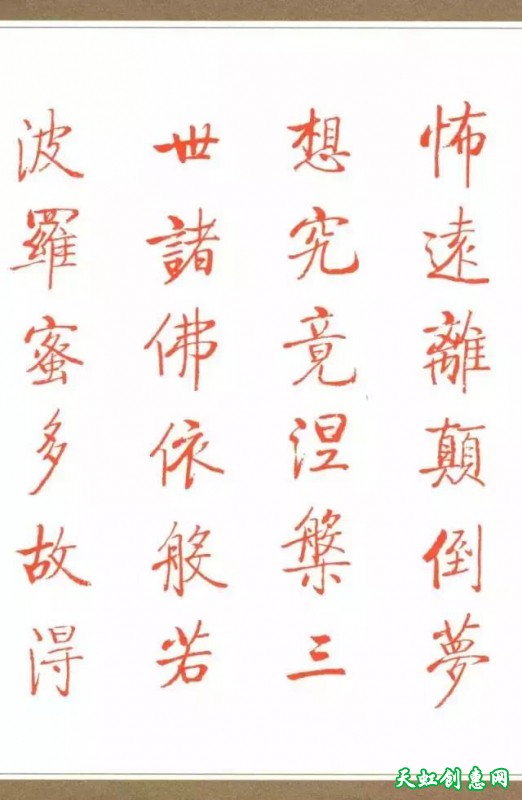 怖遠離顛倒夢
想究竟涅槃三
世諸佛依般若
波羅蜜多故得
天虹创惠网